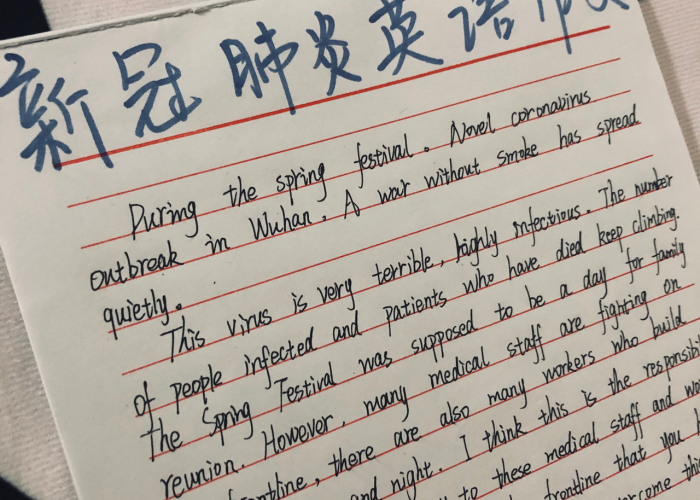 新冠肺炎英语
During the spring festival. Novel coronavirus
outbreak in Wuhan. A war without smoke has spread
quietly.
This virus is very terrible, highly infectious. The number
of people infected and patients who have died keep climbing.
The Spring Festival was supposed to be a day for family
reunion. However, many medical staff are fighting on
there are also many workers who build
and night. I think this is the
to these medical staff and
frontline that you